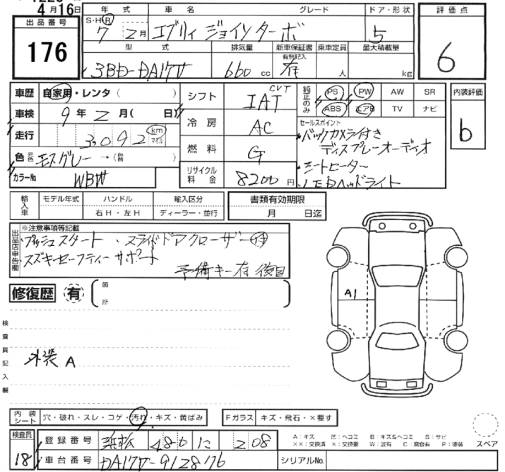 4月16日
出品番号
176
年式 車名 グレード ドア・形状
S・H・R 7年2月 エブリィ ジョインターボ 5
型式 排気量 新車保証書 乗車定員 最大積載量
有効記入
3BD-DA17V 660cc 有 人 kg
評価点
6
車歴 自家用・レンタ
車検 9年2月(日)
走行 3092 km マイル
色 モスグレー
カラーNo WBW
シフト CVT IAT
冷房 AC
燃料 G
リサイクル料金 8200円
純正のみ PS PW AW SR
ABS エアB TV ナビ
セールスポイント
・バックカメラ付き
ディスプレーオーディオ
・シートヒーター
・LEDヘッドライト
内装評価
b
輸入車 モデル年式 ハンドル 輸入区分
年 右H・左H ディーラー・並行
書類有効期限
月 日迄
出品店申告欄
※注意事項等記載
プッシュスタート・スライドドアクローザー
スズキセーフティーサポート
予備キー有 後日
修復歴 有
箇所
検査員記入欄
外装A
A1
内装シート 穴・破れ・スレ・コゲ・汚れ・キズ・黄ばみ
Fガラス キズ・飛石・×要す
検査員
18
登録番号 浜松 480 に 208
車台番号 DA17V-912876
シリアルNo.
スペア